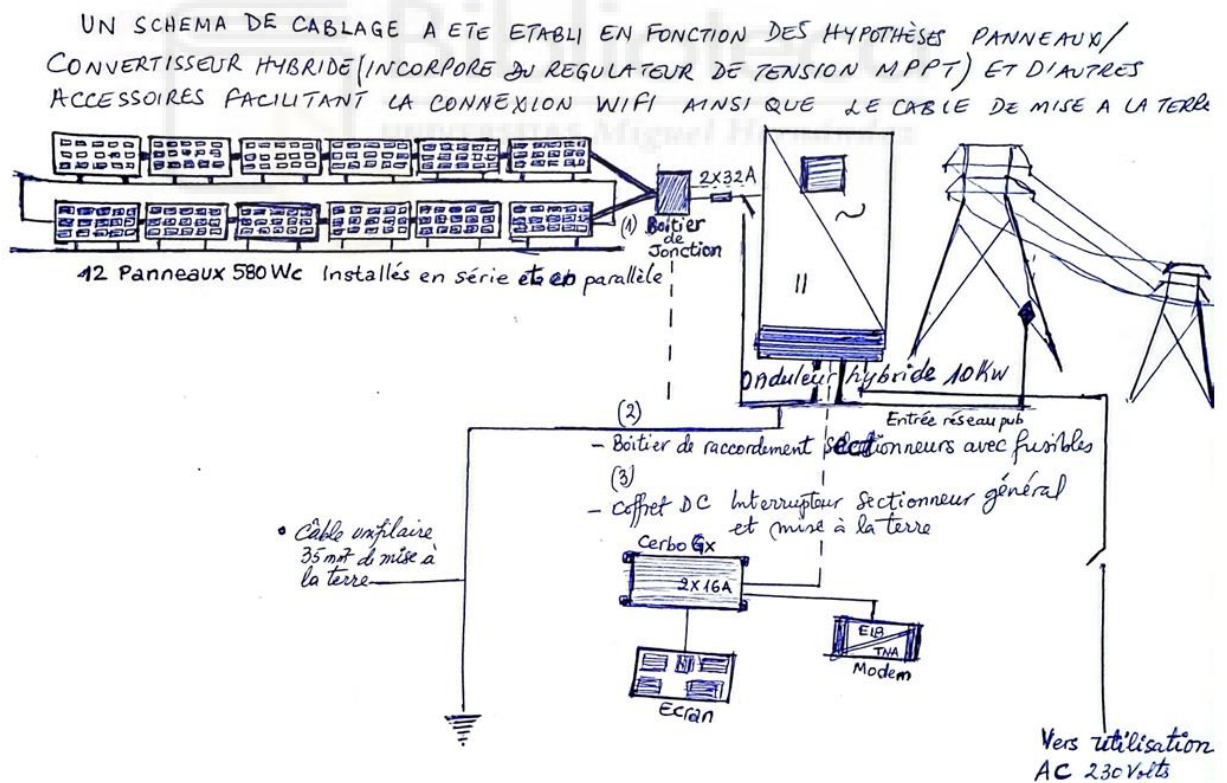 UN SCHEMA DE CABLAGE A ETE ETABLI EN FONCTION DES HYPOTHÈSES PANNEAUX/
CONVERTISSEUR HYBRIDE (INCORPORE DU REGULATEUR DE TENSION MPPT) ET D'AUTRES
ACCESSOIRES FACILITANT LA CONNEXION WIFI AINSI QUE LE CABLE DE MISE A LA TERRE
Biblioteca
UNIVERSITAS Miguel Hernández
2X32A
(1) Boitier
de
Jonction
12 Panneaux 580 Wc Installés en série et en parallèle
Onduleur hybride 10Kw
Entrée réseau pub
(2)
- Boitier de raccordement sectionneurs avec fusibles
(3)
- Coffret DC Interrupteur Sectionneur général
et mise à la terre
• Câble unifilaire
35 mm² de mise à
la terre
Cerbo Gx
2X16A
Ecran
ELB
TNA
Modem
Vers utilisation
AC 230 Volts